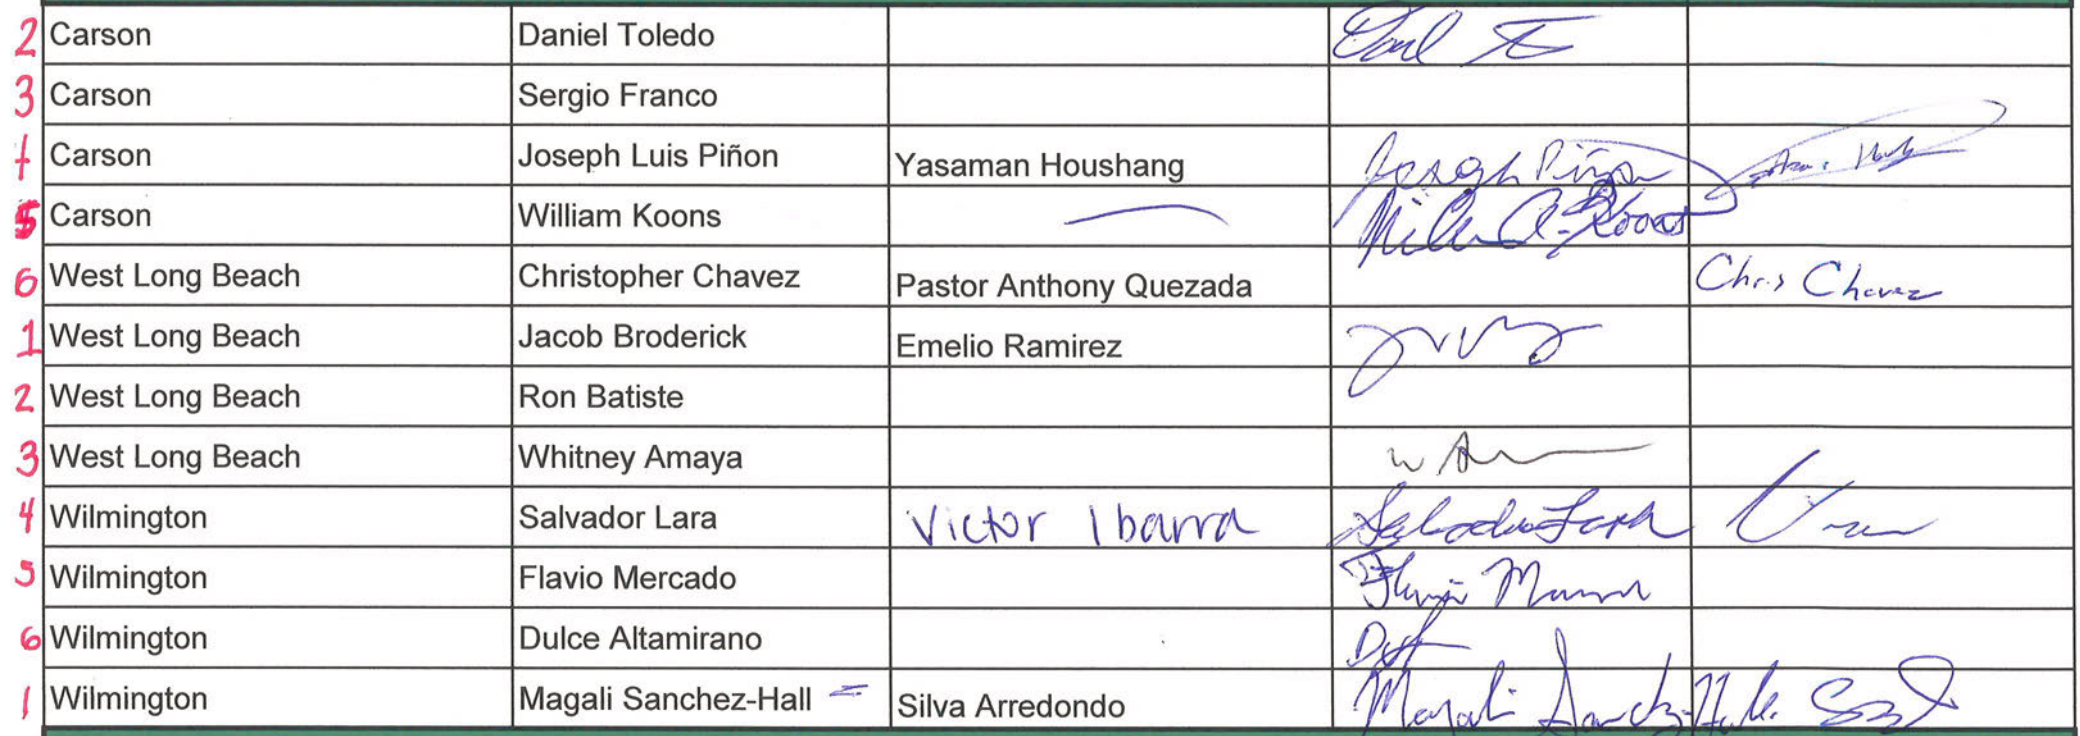 2 Carson Daniel Toledo
3 Carson Sergio Franco
Carson Joseph Luis Piñon Yasaman Houshang Joseph Piñon
5 Carson William Koons
6 West Long Beach Christopher Chavez Pastor Anthony Quezada Chris Chavez
1 West Long Beach Jacob Broderick Emelio Ramirez
2 West Long Beach Ron Batiste
3 West Long Beach Whitney Amaya
4 Wilmington Salvador Lara Victor Ibarra Salvador Lara
5 Wilmington Flavio Mercado
6 Wilmington Dulce Altamirano
1 Wilmington Magali Sanchez-Hall Silva Arredondo Magali Sanchez-Hall